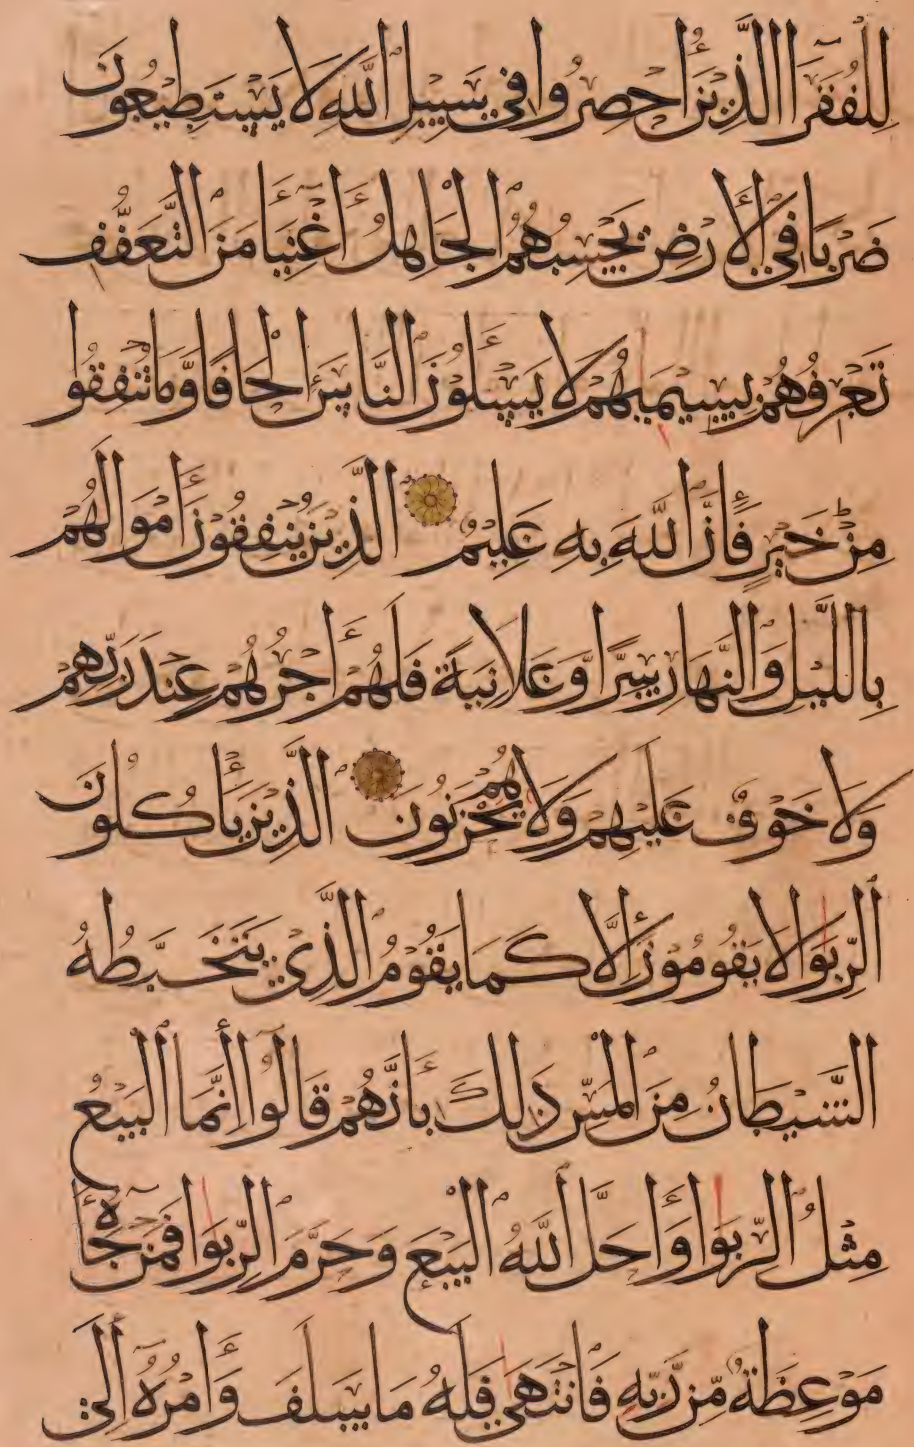 لِلْفُقَرَآءِ الَّذِينَ أُحْصِرُوا فِي سَبِيلِ اللَّهِ لَا يَسْتَطِيعُونَ
ضَرْبًا فِي الْأَرْضِ يَحْسَبُهُمُ الْجَاهِلُ أَغْنِيَآءَ مِنَ التَّعَفُّفِ
تَعْرِفُهُمْ بِسِيمَيهُمْ لَا يَسْـَٔلُونَ النَّاسَ إِلْحَافًا وَمَا تُنْفِقُوا
مِنْ خَيْرٍ فَإِنَّ اللَّهَ بِهِ عَلِيمٌ الَّذِينَ يُنْفِقُونَ أَمْوَالَهُمْ
بِاللَّيْلِ وَالنَّهَارِ سِرًّا وَعَلَانِيَةً فَلَهُمْ أَجْرُهُمْ عِنْدَ رَبِّهِمْ
وَلَا خَوْفٌ عَلَيْهِمْ وَلَا هُمْ يَحْزَنُونَ الَّذِينَ يَأْكُلُونَ
الرِّبَوا لَا يَقُومُونَ إِلَّا كَمَا يَقُومُ الَّذِي يَتَخَبَّطُهُ
الشَّيْطَانُ مِنَ الْمَسِّ ذَلِكَ بِأَنَّهُمْ قَالُوا إِنَّمَا الْبَيْعُ
مِثْلُ الرِّبَوا وَأَحَلَّ اللَّهُ الْبَيْعَ وَحَرَّمَ الرِّبَوا فَمَنْ جَآءَهُ
مَوْعِظَةٌ مِّنْ رَّبِّهِ فَانْتَهَى فَلَهُ مَا سَلَفَ وَأَمْرُهُ إِلَى